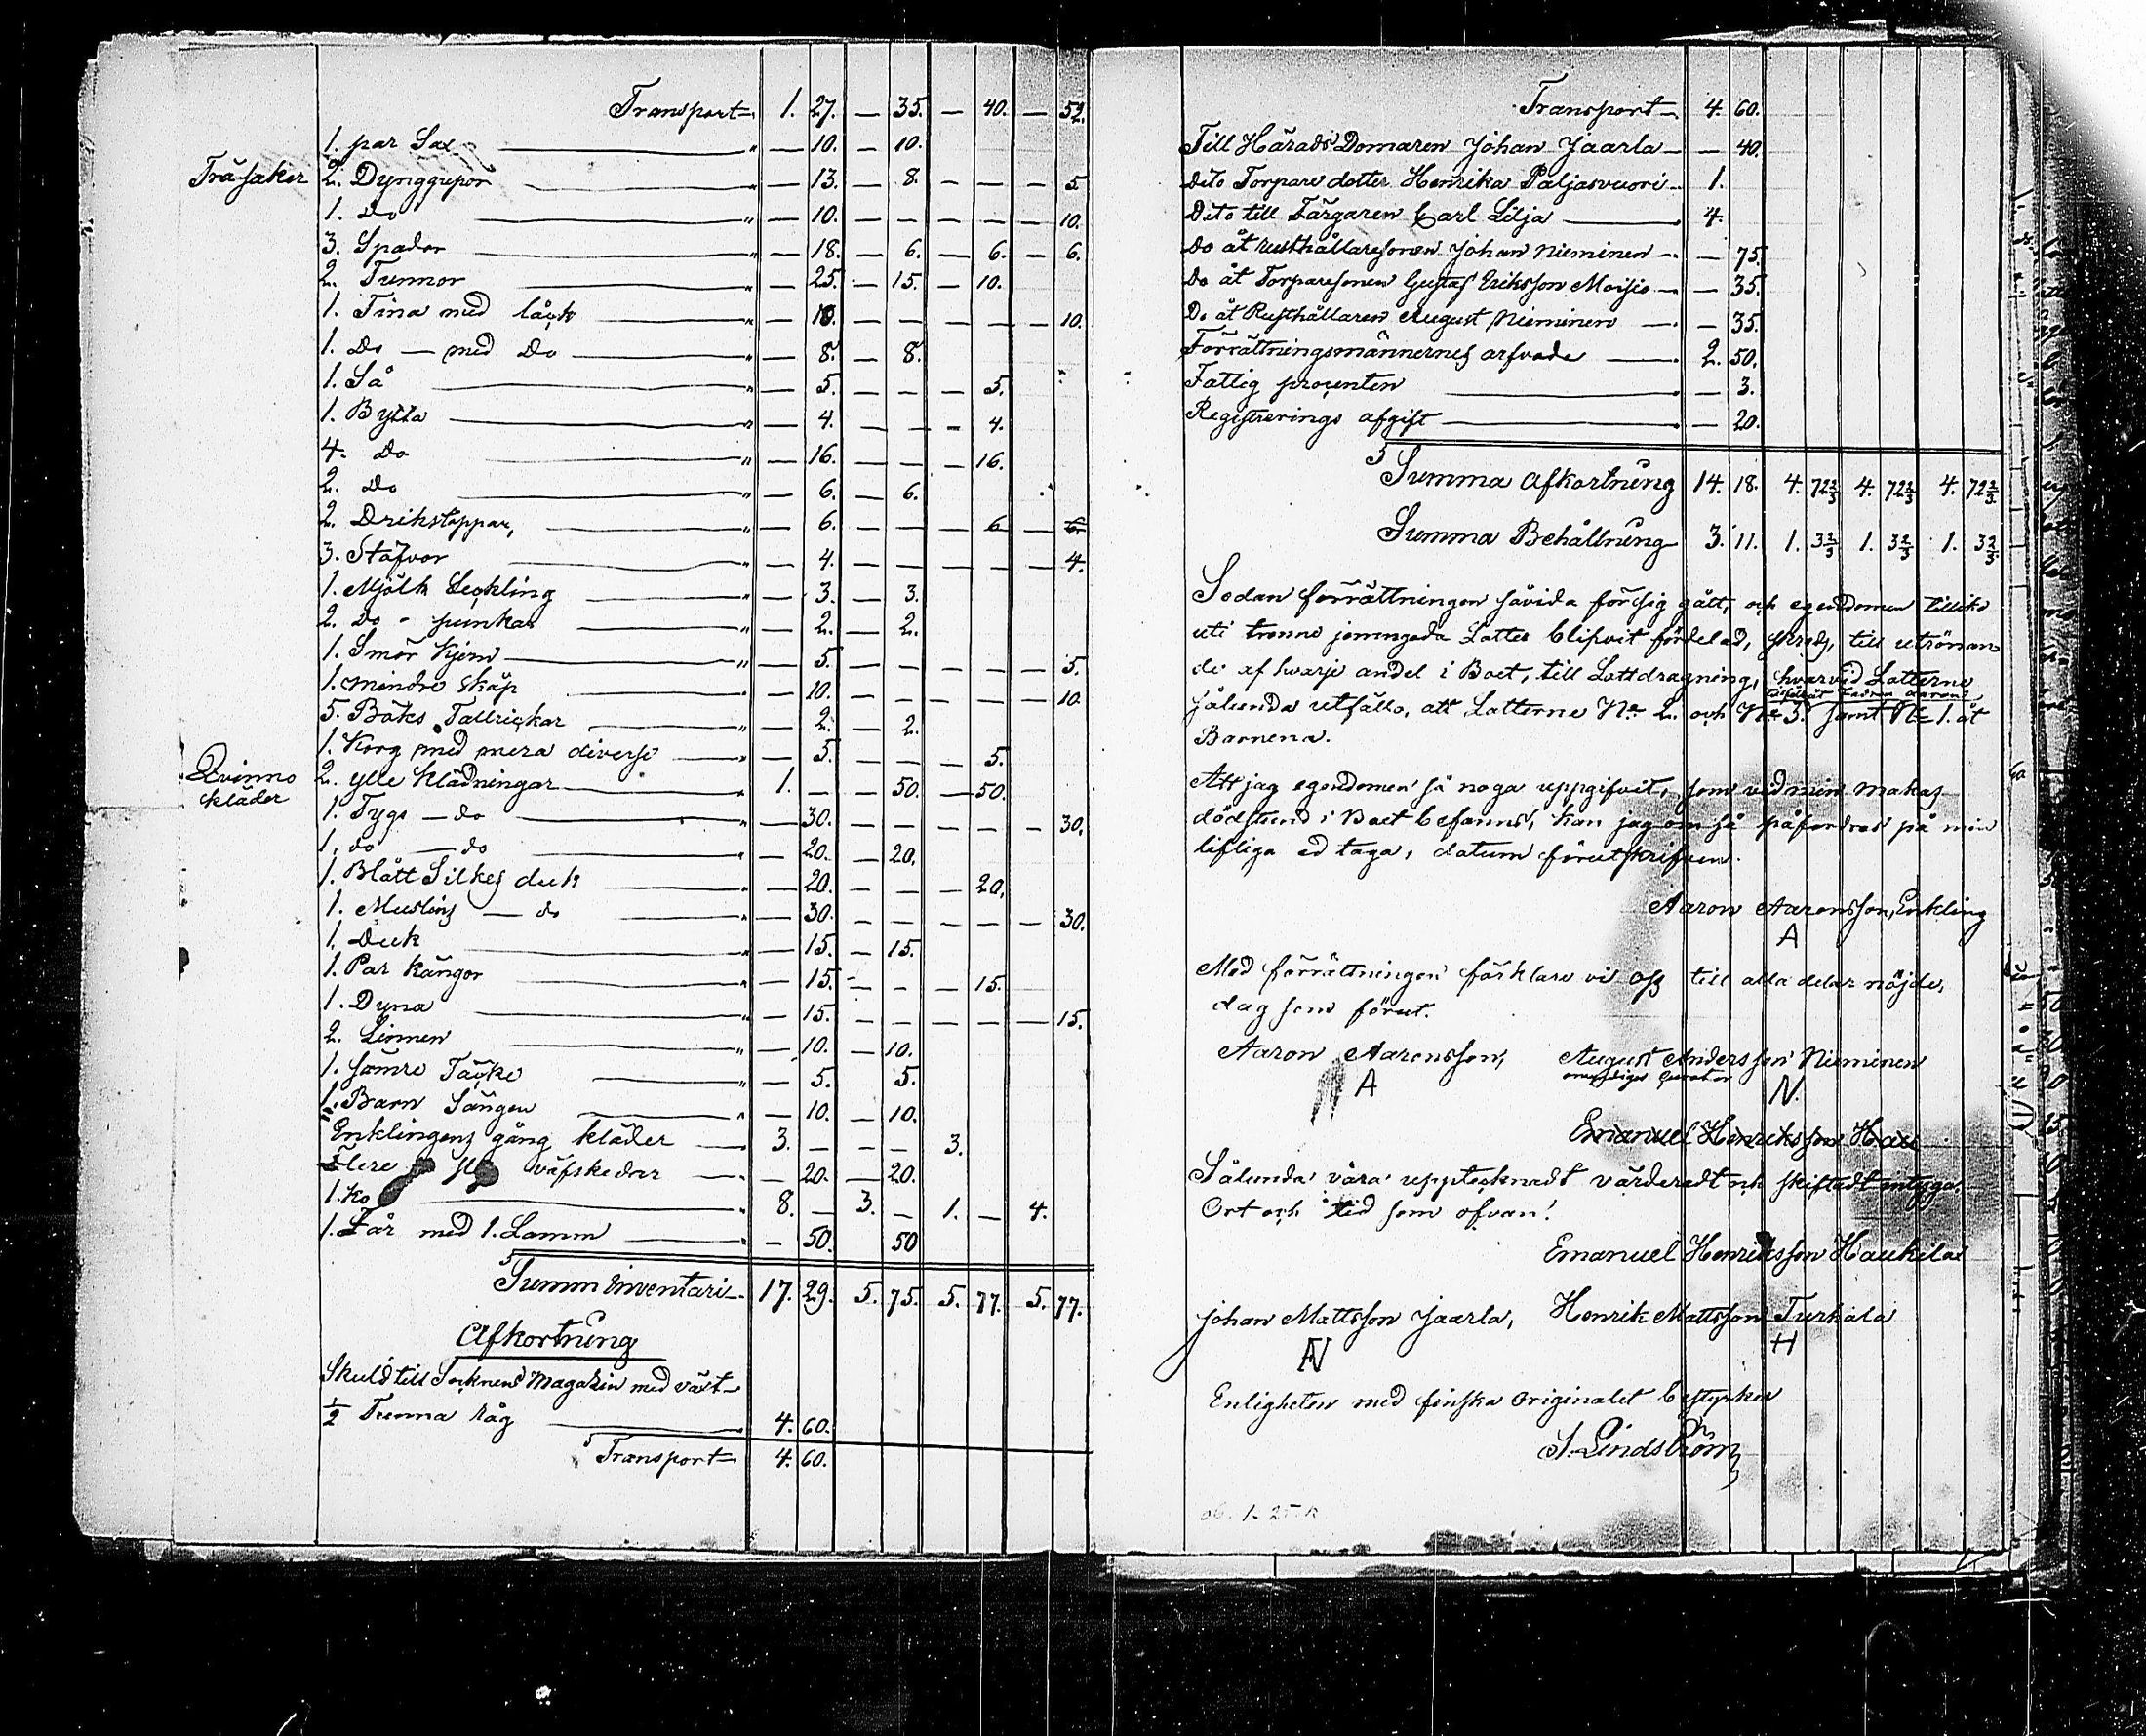 Transport 1. 27. — 35. — 40. — 52.
1. par Sax " — 10. — 10.
Träsaker 2. Dynggrepor " — 13. — 8. — — — 5.
1. Do " — 10. — — — — — 10.
3. Spador " — 18. — 6. — 6. — 6.
2. Tunnor " — 25. — 15. — 10.
1. Tina med låck " — 10. — — — — — 10.
1. Do — med Do " — 8. — 8.
1. Så " — 5. — — — 5.
1. Bytta " — 4. — — — 4.
4. Do " — 16. — — — 16.
2. Do " — 6. — 6.
2. Drikstoppar, " — 6. — — — 6 — 6.
3. Stäfvor " — 4. — — — — — 4.
1. Mjölk Leckling " — 3. — 3.
2. Do - punkar " — 2. — 2.
1. Smör Kjern " — 5. — — — — — 5.
1. mindre skåp — 10. — — — — — 10.
5. Bäks Tallrickar " — 2. — 2.
1. Korg med mera diverse " — 5. — — — 5.
Qvinno kläder 2. ylle klädningar " 1. — — 50. — 50.
1. Tygs — do " — 30. — — — — — 30.
1. do — do " — 20. — 20.
1. Blått Silkes duk " — 20. — — — 20.
1. Muslins — do " — 30. — — — — — 30.
1. Duk " — 15. — 15.
1. Par kängor " — 15. — — — 15.
1. Dyna " — 15. — — — — — 15.
2. Linnen " — 10. — 10.
1. sämre Täcke " — 5. 5.
1. Barn Sängen " — 10. — 10.
Enklingens gång kläder 3. — — — 3.
Flere väfskedar — 20. — 20.
1. Ko " 8. — 3. — 1. — 4.
1. Får med 1. Lamm " — 50. 50
Summ Inventari 17. 29. 5. 75. 5. 77. 5. 77.
Afkortning
Skuld till Socknens Magazin med växt
1/2 Tunna råg 4. 60.
Transport 4. 60.
Transport 4. 60.
Till HäradsDomaren Johan Jaarla — 40.
Dito Torpare dotter Henrika Paljasvuori 1.
Dito till Färgaren Carl Lilja 4.
Do åt rusthållaresonen Johan Nieminen — 75.
Do åt Torparesonen Gustaf Eriksson Moisio — 35.
Do åt Rusthållaren August Nieminen — 35.
Förrättningsmännernes arfvode 2. 50.
Fattig procenten — 3.
Registrerings afgift — 20.
Summa afkortning 14. 18. 4. 72 2/3 4. 72 2/3 4. 72 2/3
Summa Behållning 3. 11. 1. 3 2/3 1. 3 2/3 1. 3 2/3
Sedan förrättningen såvida försig gått, och egendomen tillika
uti trenne jemngoda Lotter blifvit fördelad, skreds, till utrönan
de af hvarje andel i Boet, till Lottdragning, hvarvid Lotterne
sålunda utföllo, att Lotterne No 2. och No 3. samt No 1. åt
Barnena.
Att jag egendomen så noga uppgifvit, som vid min makas
dödstund i Boet befanns, kan jag om så påfordras på min
lifliga ed taga, datum förutskrifven.
Aaron Aaronsson, Enkling
A
Med förrättningen förklare vi oss till alla delar nöjde,
dag som förut.
Aaron Aaronsson, August Andersson Nieminen
A N.
Emanuel Henriksson Hau
Sålunda vara upptecknadt värderadt och skiftadt intyga.
Ort och tid som ofvan.
Emanuel Henriksson Haukila
Johan Mattsson Jaarla, Henrik Mattsson Turkala
H
Enligheten med finska originalet bestyrker
S. Lindström